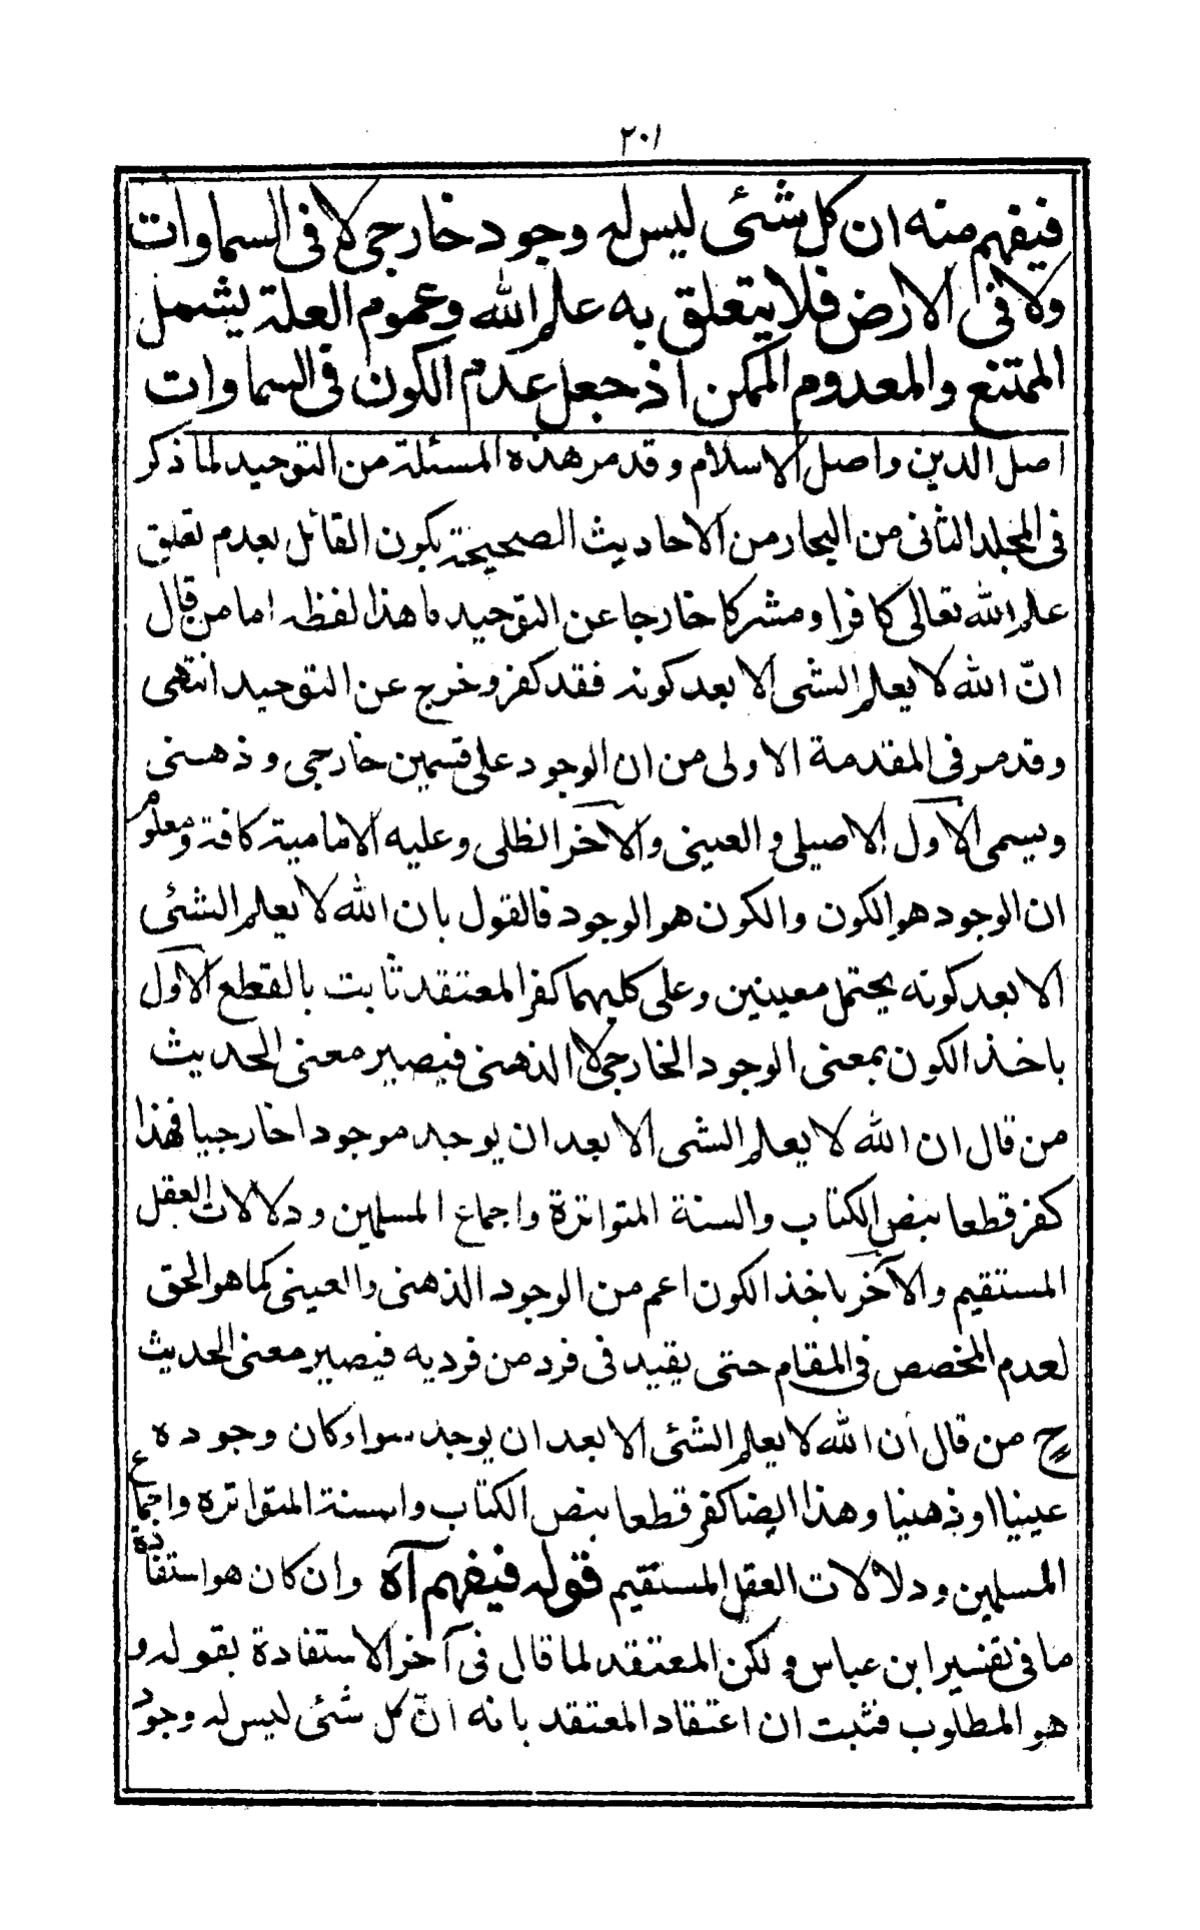 ٢٠١
فيفهم منه ان كل شئى ليس له وجود خارجى لا فى السماوات
ولا فى الارض فلا يتعلق به علم الله وعموم العلة يشمل
الممتنع والمعدوم الممكن اذ جعل عدم الكون فى السماوات
اصل الدين واصل الاسلام وقد مر هذه المسئلة من التوحيد لما ذكر
فى المجلد الثانى من البحار من الاحاديث الصحيحة بكون القائل بعدم تعلق
علم الله تعالى كافرا ومشركا خارجا عن التوحيد ما هذا لفظه اما من قال
انّ الله لا يعلم الشى الا بعد كونه فقد كفر وخرج عن التوحيد انتهى
وقد مر فى المقدمة الاولى من ان الوجود على قسمين خارجى وذهنى
ويسمى الاول الاصيلى والعينى والآخر الظلى وعليه الامامية كافة ومعلوم
ان الوجود هو الكون والكون هو الوجود فالقول بان الله لا يعلم الشئى
الا بعد كونه يحتمل معينين وعلى كليهما كفر المعتقد ثابت بالقطع الاول
باخذ الكون بمعنى الوجود الخارجى لا الذهنى فيصير معنى الحديث
من قال ان الله لا يعلم الشى الا بعد ان يوجد موجودا خارجيا فهذا
كفر قطعا بنص الكتاب والسنة المتواترة واجماع المسلمين ودلالات العقل
المستقيم والآخر باخذ الكون اعم من الوجود الذهنى والعينى كما هو الحق
لعدم المخصص فى المقام حتى يقيد فى فرد من فرديه فيصير معنى الحديث
ح من قال ان الله لا يعلم الشئى الا بعد ان يوجد سواء كان وجوده
عينيا او ذهنيا وهذا ايضا كفر قطعا بنص الكتاب والسنة المتواتره واجماع
المسلمين ودلالات العقل المستقيم قوله فيفهم آه وان كان هو استفادة
ما فى تفسير ابن عباس ولكن المعتقد لما قال فى آخر الاستفادة بقوله و
هو المطلوب فثبت ان اعتقاد المعتقد بانه انّ كل شئى ليس له وجود